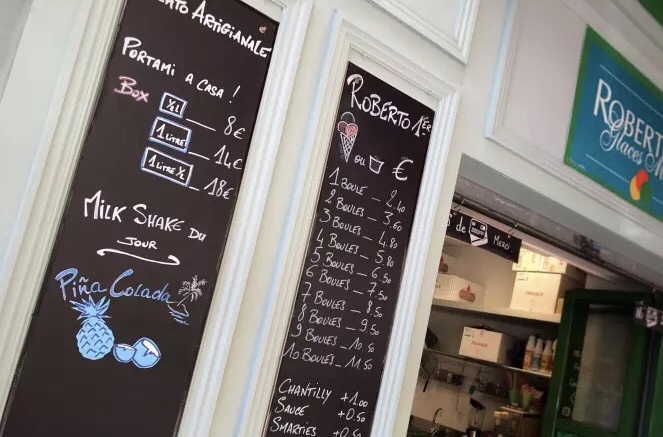 Artigianale
Portami a casa !
Box
½ L — 8€
1 Litre — 14€
1 Litre ½ — 18€
Milk Shake du
jour
Piña Colada
Roberto 1er
ou €
1 Boule — 2.40
2 Boules — 3.60
3 Boules — 4.80
4 Boules — 5.80
5 Boules — 6.50
6 Boules — 7.50
7 Boules — 8.50
8 Boules — 9.50
9 Boules — 10.50
10 Boules — 11.50
Chantilly +1.00
Sauce +0.50
Smarties +0.50
Robert
Glaces
de
Merci